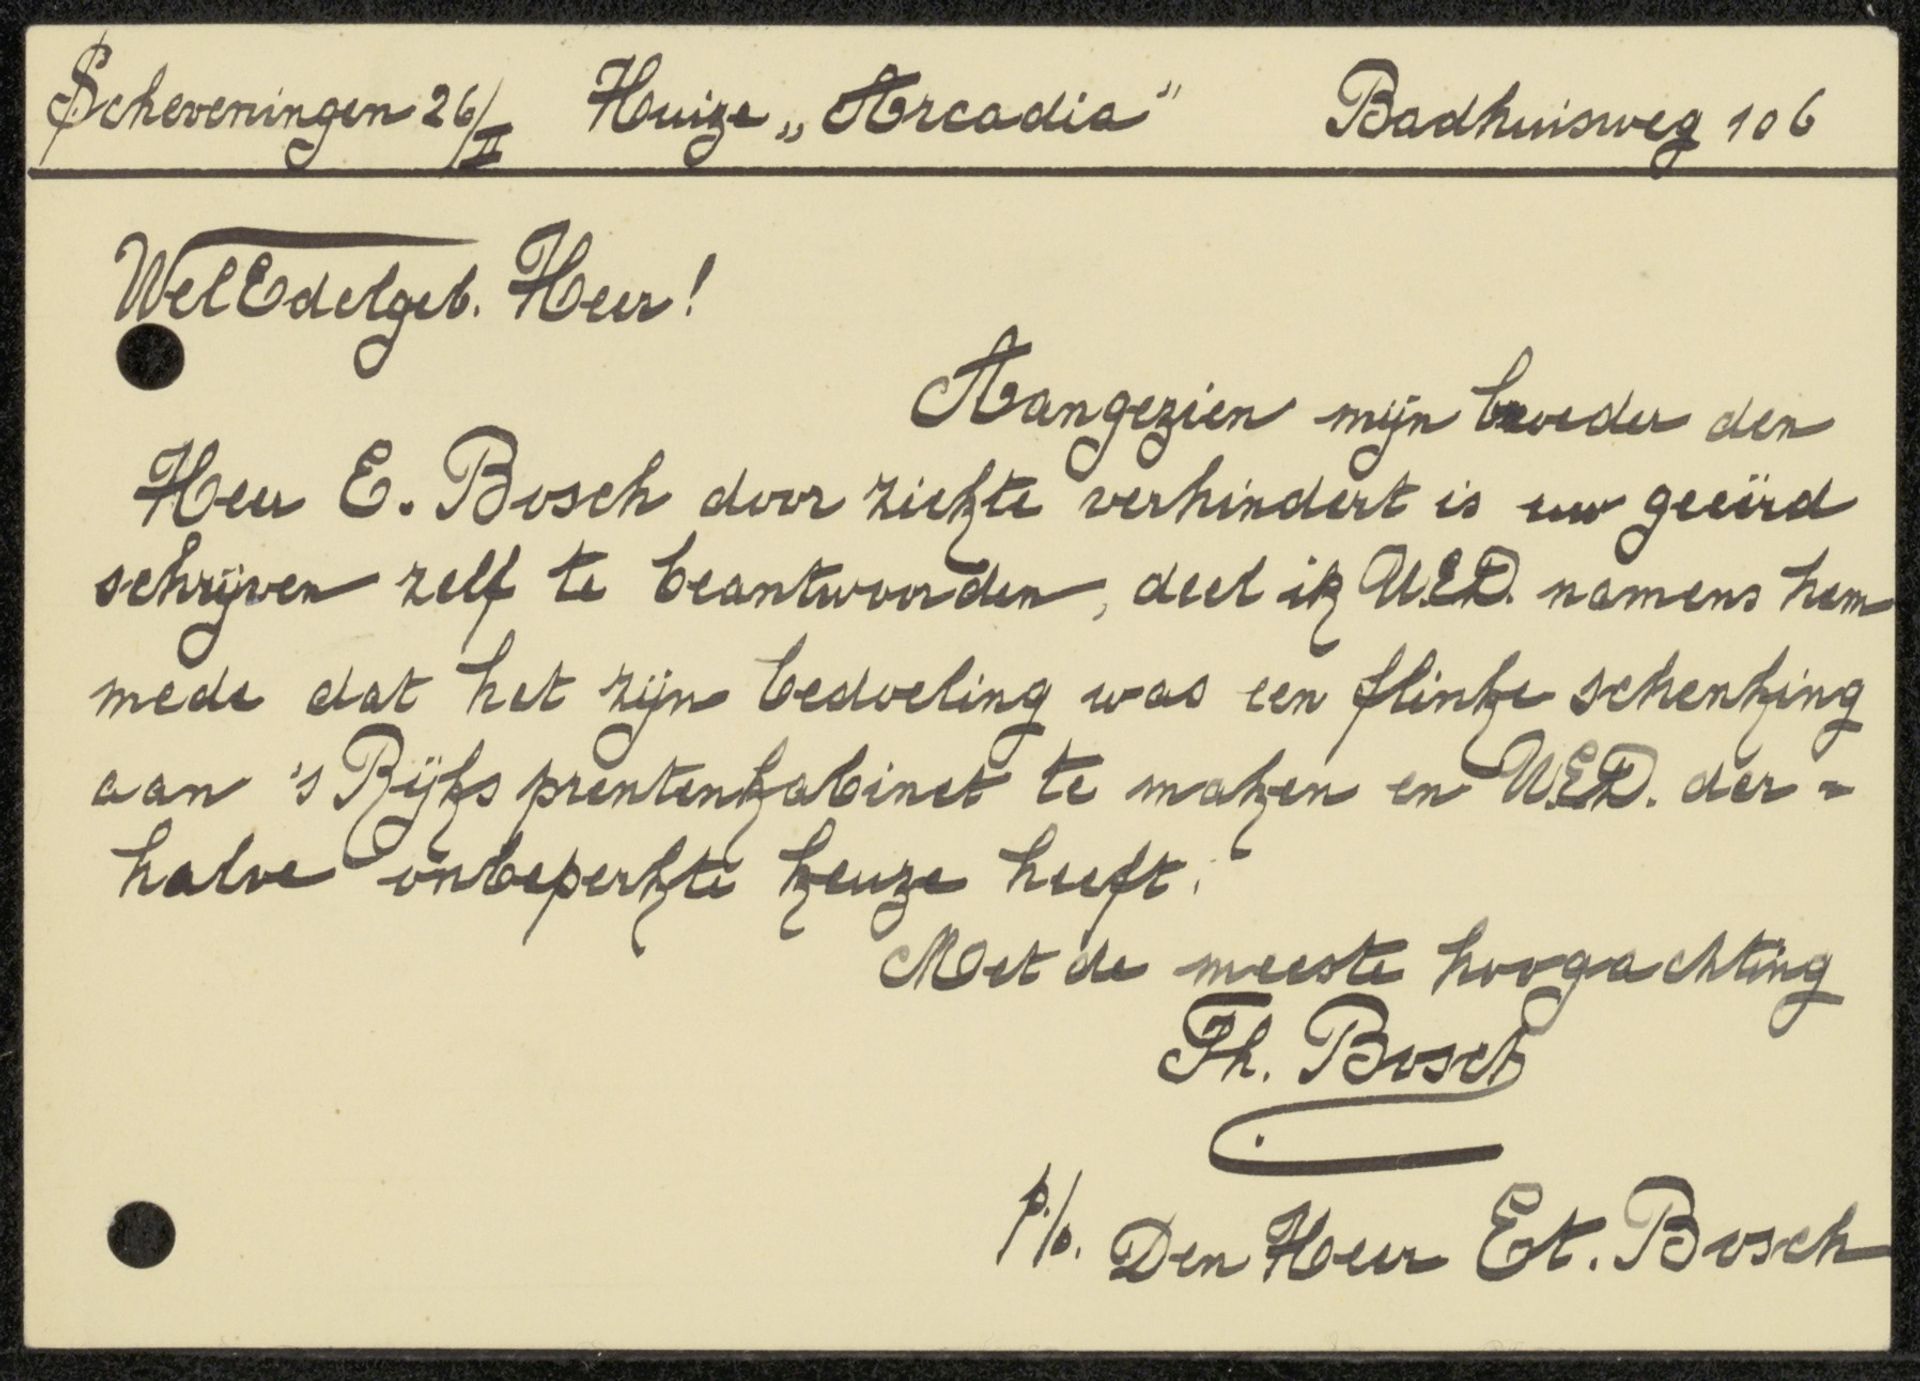 Scheveningen 26/II Huize „Arcadia" Badhuisweg 106
WelEdelgeb. Heer!
Aangezien mijn broeder den
Heer E. Bosch door ziekte verhindert is uw geëerd
schrijven zelf te beantwoorden, deel ik U.E.D. namens hem
mede dat het zijn bedoeling was een flinke schenking
aan 's Rijks prentenkabinet te maken en U.E.D. der=
halve onbeperkte keuze heeft.
Met de meeste hoogachting
Th. Bosch
p/o. Den Heer Et. Bosch